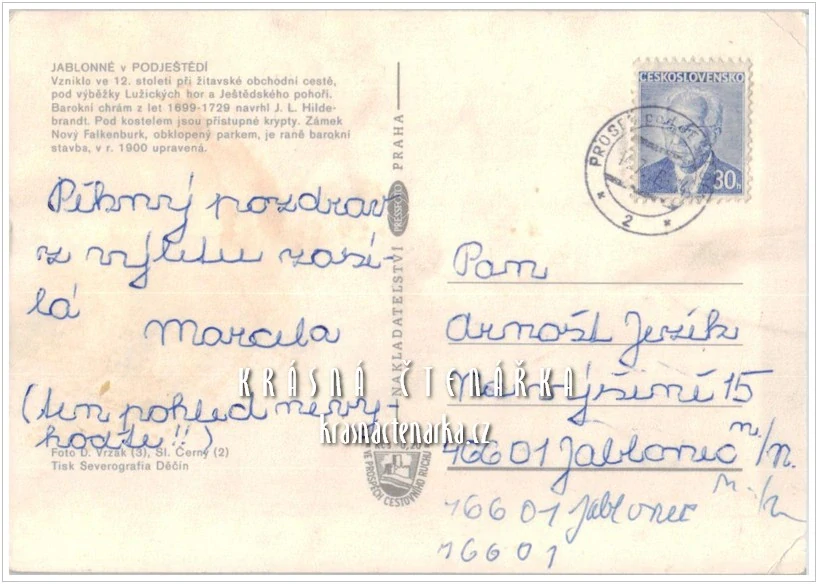 JABLONNÉ v PODJEŠTĚDÍ
Vzniklo ve 12. století při žitavské obchodní cestě,
pod výběžky Lužických hor a Ještědského pohoří.
Barokní chrám z let 1699-1729 navrhl J. L. Hilde-
brandt. Pod kostelem jsou přístupné krypty. Zámek
Nový Falkenburk, obklopený parkem, je raně barokní
stavba, v r. 1900 upravená.
Pěkný pozdrav
z výletu zasí-
lá
Marcela
(ten pohled nevy-
hoďte!!)
Foto D. Vrzák (3), Sl. Černý (2)
Tisk Severografia Děčín
NAKLADATELSTVÍ PRESSFOTO PRAHA
VE PROSPĚCH CESTOVNÍHO RUCHU
ČESKOSLOVENSKO
30h
PROSEČ
2
Pan
Arnošt Jezík
Na výšině 15
46601 Jablonec n./N.
46601 Jablonec n./N
46601
KRÁSNÁ ČTENÁŘKA
krasnactenarka.cz